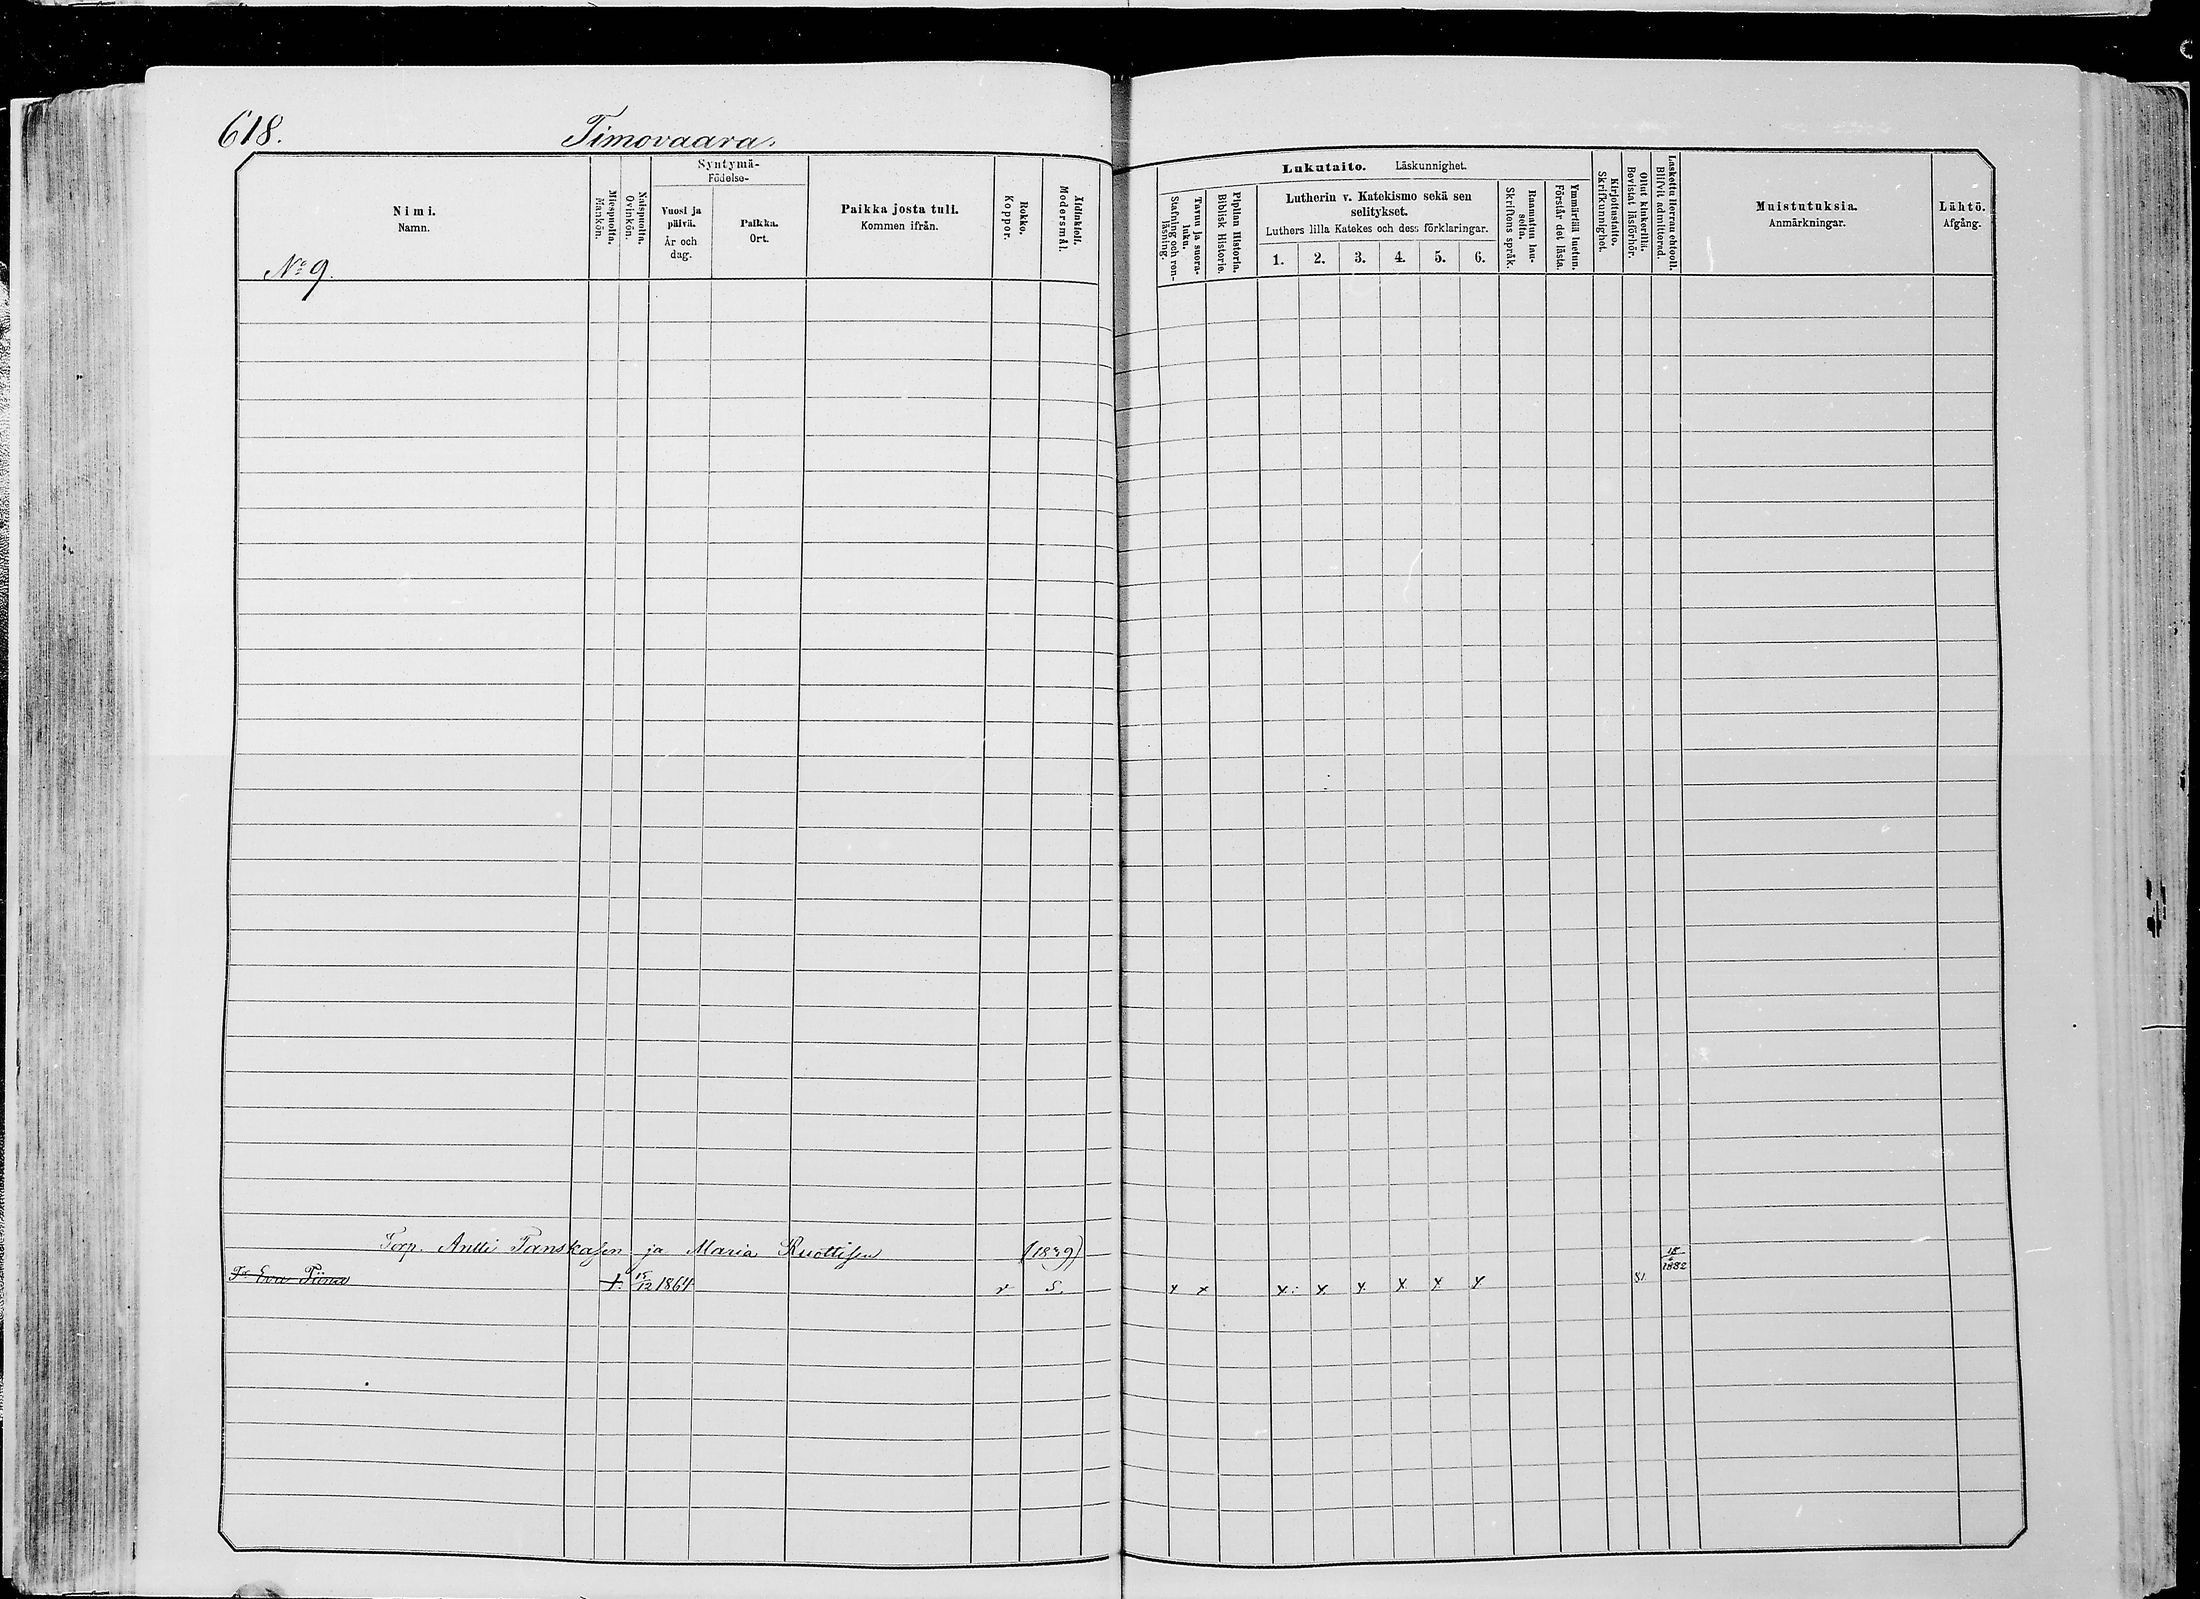 618. Timovaara.
Syntymä-
Födelse-
Nimi.
Namn.
Miespuolia.
Mankön.
Naispuolia.
Qvinkön.
Vuosi ja päivä.
År och dag.
Paikka.
Ort.
Paikka josta tuli.
Kommen ifrån.
Rokko.
Koppor.
Äidinkieli.
Modersmål.
No 9.
Lukutaito. Läskunnighet.
Tavuu ja suora-
luku.
Stafning och ren-
läsning.
Piplian Historia.
Biblisk Historie.
Lutherin v. Katekismo sekä sen
selitykset.
Luthers lilla Katekes och dess förklaringar.
1. 2. 3. 4. 5. 6.
Raamatun lau-
seita.
Skriftens språk.
Ymmärtää luetun.
Förstår det lästa.
Kirjoitustaito.
Skrifkunnighet.
Ollut kinkerillä.
Bevistat läsförhör.
Laskettu Herran ehtooll.
Blifvit admitterad.
Muistutuksia.
Anmärkningar.
Lähtö.
Afgång.
Torp. Antti Tanskasen ja Maria Ruottisen (1839)
Tr Eva Tiina +. 15/12 1864 v S. x x x: x x x x x 81 18/6 1882